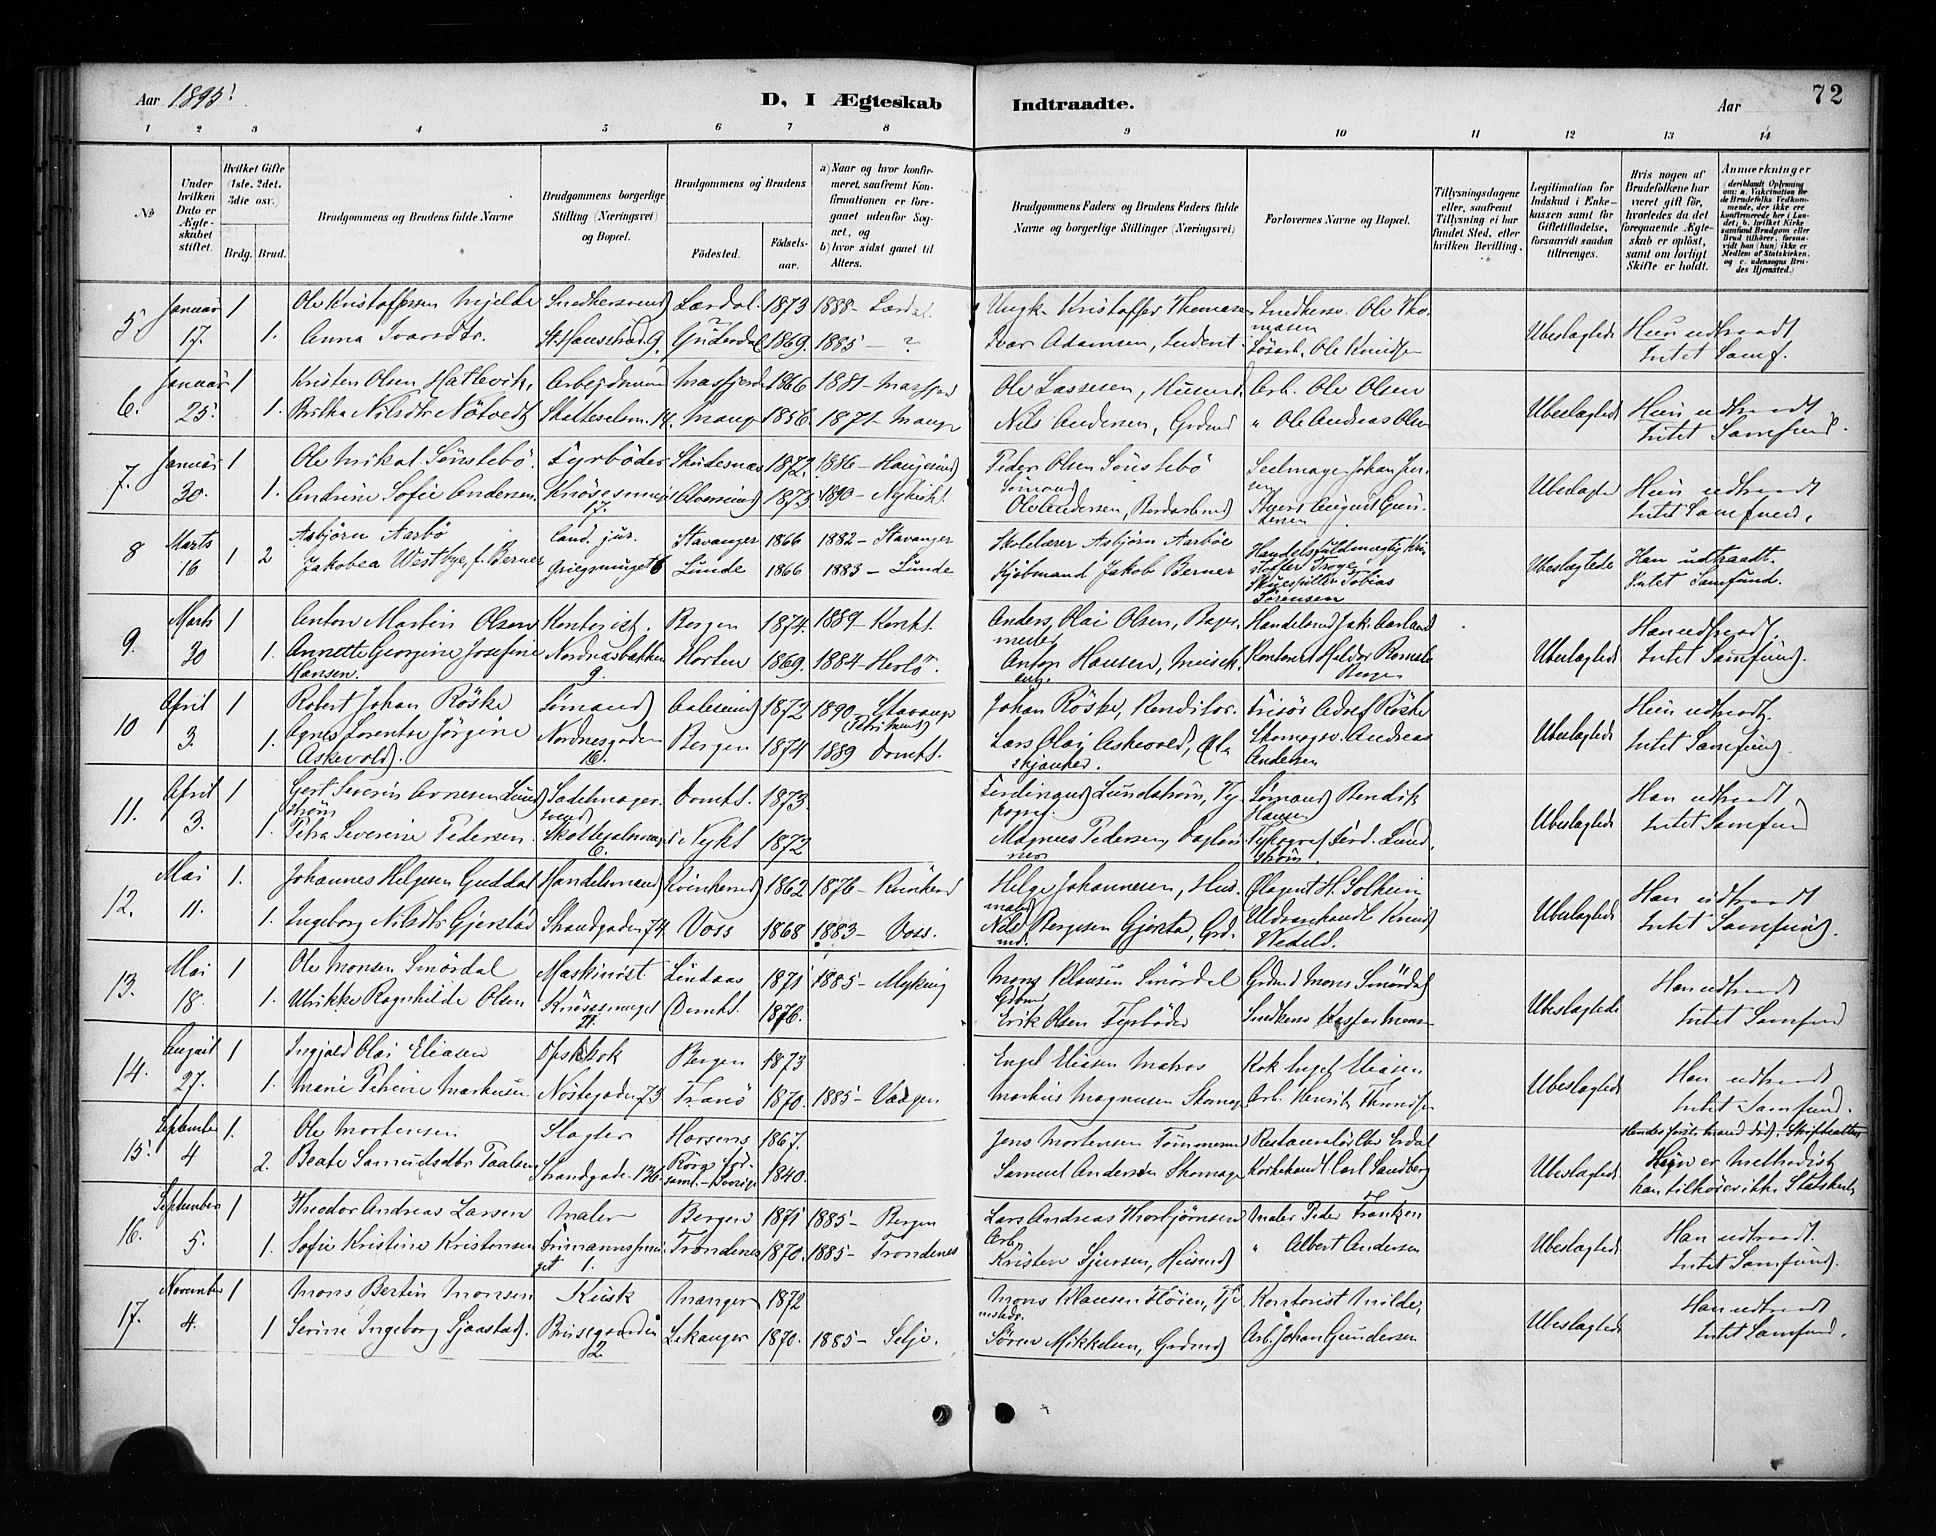 Aar 1895. D, I Ægteskab Indtraadte. Aar 72
1 2 3 4 5 6 7 8 9 10 11 12 13 14
No
Under hvilken Dato er Ægteskabet stiftet.
Hvilket Gifte (1ste, 2det, 3die osv.)
Brdg. Brud.
Brudgommens og Brudens fulde Navne
Brudgommens borgerlige Stilling (Næringsvei) og Bopæl.
Brudgommens og Brudens
Fødested.
Fødselsaar.
a) Naar og hvor konfirmeret, saafremt Konfirmationen er foregaaet udenfor Sognet, og
b) hvor sidst gaaet til Alters.
Brudgommens Faders og Brudens Faders fulde Navne og borgerlige Stillinger (Næringsvei)
Forlovernes Navne og Bopæl.
Tillysningsdagene eller, saafremt Tillysning ei har fundet Sted, efter hvilken Bevilling.
Legitimation for Indskud i Enkekassen samt for Giftetilladelse, forsaavidt saadan tiltrænges.
Hvis nogen af Brudefolkene har været gift før, hvorledes da det foregaaende Ægteskab er opløst, samt om lovligt Skifte er holdt.
Anmærkninger
5. Januar 1 Ole Kristoffersen Mjelde Snedkersvend Lærdal. 1873 1888 - Lærdal Ungk. Kristoffer Thomasen Snedkersv. Ole Thomasen Ubeslægtede Hun udtraadt
17. 1. Anna Ivarsdtr. St. Hansstræd 9. 1869. 1885 - ? Ivar Adamsen, Løsarb. Ole Knudsen Intet Samf.
6. Januar 1 Kristen Olsen Hatlevik, Arbejdsmand Masfjord 1866 1881 - Masfjord Ole Lassesen, Husmd. Arb. Ole Olsen Ubeslægtede Hun udtraadt
25. 1. Britha Nilsdtr Nötvedt Skottesalm. 14. Manger 1856. 1871 - Manger Nils Andersen, Grdmd " Ole Andreas Olsen Intet Samfund.
7. Januar 1 Ole Mikal Sönstebö. Fyrböder Skudesnæs 1872. 1886 - Haugesund Peder Olsen Sönstebö Sömand Seilmager Johan Jensen Ubeslægte Hun udtraadt
30. 1. Andrine Sofie Andersen. Knösesmug 17. Alversund 1873 1890 - Nykirk. Ole Andersen, Bordarbmd August Gundersen Intet Samfund.
8 Marts 1 2 Asbjörn Aarbö Cand. jur. Stavanger 1866 1882 - Stavanger Skolelærer Asbjörn Aarböe Handelsfuldmægtig Kristoffer Troye Ubeslægtede Han udtraadt.
16 Jakobea Westbye, f. Berner Griegsmuget 6 Lunde 1866 1883 - Lunde Kjöbmand Jakob Berner Skuespiller Tobias Sörensen Intet Samfund.
9. Marts 1 Anton Martin Olsen Kontorist. Bergen 1874. 1889 - Korskk. Anders Olai Olsen, Bagermester Handelsmd Jak. Aarland Ubeslægtede Han udtraadt.
30 1. Annette Georgine Josefine Hansen. Nordnæsbakken 9. Horten 1869. 1884 - Herlö. Anton Hansen, Kontorist Intet Samfund.
10 April 1 Robert Johan Röske Sömand Aalesund 1872 1890 - Stavanger (Petrikirk) Johan Röske, Konditor. Frisör Adolf Röske Ubeslægtede Hun udtraadt.
3. 1. Agnes Lorentse Jörgine Askevold. Nordnesgaden 16. Bergen 1874 1889 Domk. Lars Olai Askevold, Ølskjænker. Skomagersv. Andreas Andersen Intet Samfund.
11. April 1 Gert Severin Arnesen Lundström Sadelmagersvend Domk. 1873. Ferdinand Lundström, Typograf. Sömand Bendik Hansen Ubeslægtede Han udtraadt
3. 1. Petra Severine Pedersen. Skottesalmn. 6. Nykk 1872 Magnus Pedersen, Daglönner Typograf Ferd. Lundström. Intet Samfund
12. Mai 1. Johannes Helgesen Guddal Handelsmand Kvinherred 1862 1876 - Kvinherred Helge Johannesen, Husmand Ølagent H. Solheim Ubeslægtede Han udtraadt
11. 1. Ingeborg Nilsdtr Gjerstad Strandgaden 74 Voss 1868 1883 - Voss. Nils Bergesen Gjerstad, Grdmd. Uldvarehandl. Knud Vedeld. Intet Samfund.
13. Mai 1 Ole Monsen Smördal Maskinist Lindaas 1871 1885 - Myking Mons Klausen Smördal Grdmd Grdmd Mons Smördal Ubeslægtede Han udtraadt
18. 1. Ulrikke Ragnhilde Olsen Knösesmuget 21. Domk. 1876. Erik Olsen Fyrböder Snedkersv Kasper Monsen Intet Samfund
14. August 1 Ingjald Olai Eliasen Opskok Bergen 1873 Engel Eliasen Matros Kok Ingel Eliasen Ubeslægtede Han udtraadt
27. 1. Marie Petrine Markusen Nöstegaden 73 Tranö 1870. 1885 - Vaagen Markus Magnusen Skomag. Arb. Henrik Intet Samfund.
15. September 1. Ole Mortensen Slagter Horsens 1867. Jens Mortensen Tömmermd Restauratör Ole Erdal Ubeslægtede Hendes förste mand död. Skifteattest
4 2. Beate Samuelsdtr Paalsen Strandgade 136. 1840. Samuel Andersen Skomager Korkehandl. Carl Sandberg Hun er Methodist han tilhörer ikke Statskirk.
16. September 1 Theodor Andreas Larsen Maler Bergen 1871 1885 - Bergen Lars Andreas Thorbjörnsen Arb. Maler Peder Frantzen Ubeslægtede Han udtraadt.
5. 1. Sofie Kristine Kristensen Frimannsmuget 1. Trondenes 1870. 1885 - Trondenes Kristen Sjursen, Husmd " Albert Andersen Intet Samfund.
17. November 1 Mons Bertin Monsen Kusk Manger 1872 Mons Klausen Flöien, Kontorist Milde, Ubeslægtede Han udtraadt
4. 1 Serine Ingeborg Sjaastad. Brusegaarden 12 Lekanger 1870. 1885 - Selje. Sören Mikkelsen, Grdmd Arb. Johan Gundersen Intet Samfund.